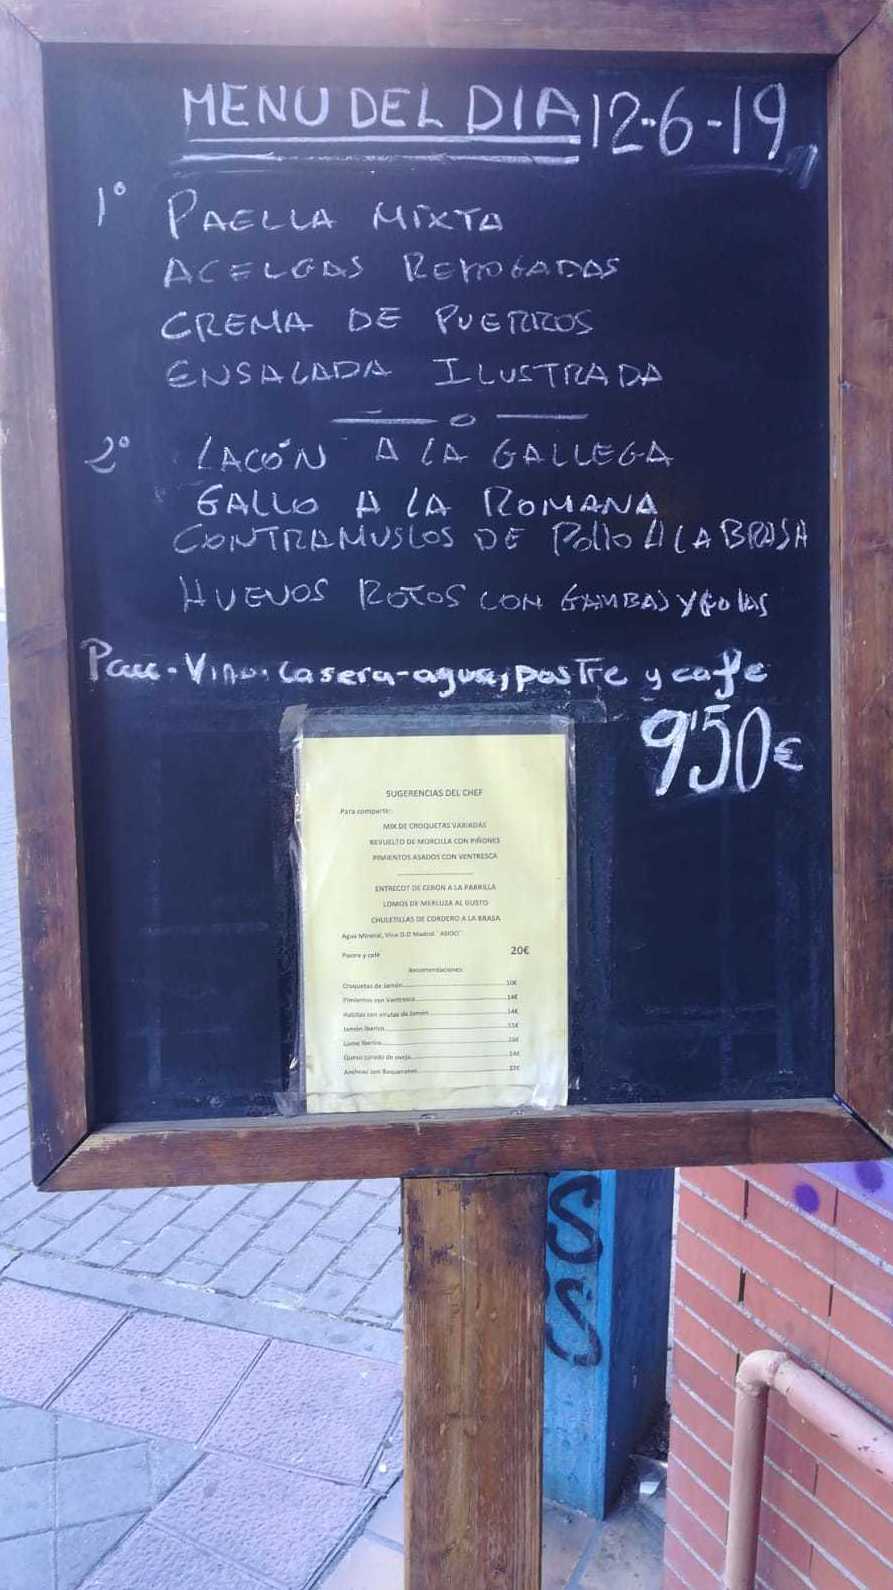 MENU DEL DIA 12-6-19
1º PAELLA MIXTA
ACELGAS REHOGADAS
CREMA DE PUERROS
ENSALADA ILUSTRADA
2º LACÓN A LA GALLEGA
GALLO A LA ROMANA
CONTRAMUSLOS DE POllO A LA BRASA
HUEVOS ROTOS CON GAMBAS Y GULAS
Pan-Vino, casera-agua, posTre y cafe
9'50€
SUGERENCIAS DEL CHEF
Para compartir:
MIX DE CROQUETAS VARIADAS
REVUELTO DE MORCILLA CON PIÑONES
PIMIENTOS ASADOS CON VENTRESCA
ENTRECOT DE CEBÓN A LA PARRILLA
LOMOS DE MERLUZA AL GUSTO
CHULETILLAS DE CORDERO A LA BRASA
Agua Mineral, Vino D.O Madrid
Postre y café 20€
Recomendaciones:
Croquetas de Jamón 10€
Pimientos con Ventresca 14€
Habitas con virutas de Jamón 14€
Jamón Iberico
Lomo Iberico
Queso curado de oveja 14€
Anchoas con Boquerones